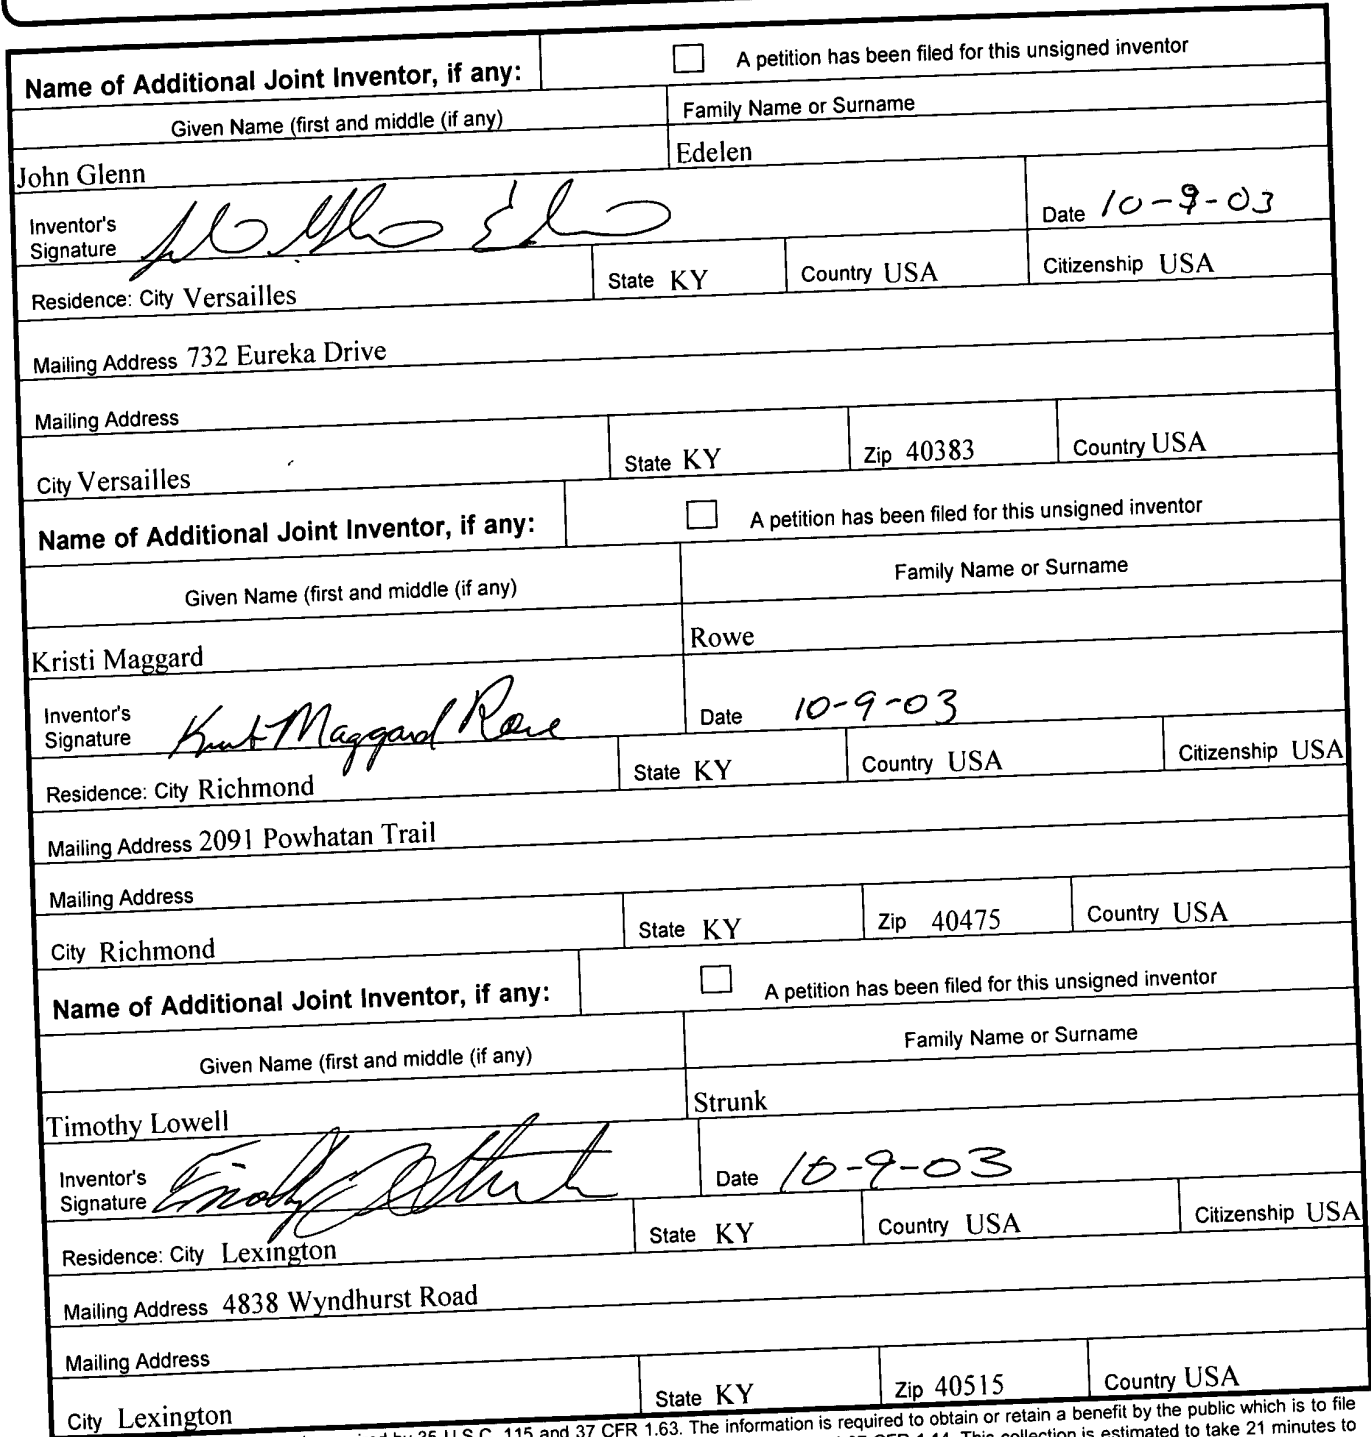 Name of Additional Joint Inventor, if any: A petition has been filed for this unsigned inventor
Given Name (first and middle (if any) Family Name or Surname
John Glenn Edelen
Inventor's
Signature Date 10-9-03
Residence: City Versailles State KY Country USA Citizenship USA
Mailing Address 732 Eureka Drive
Mailing Address
City Versailles State KY Zip 40383 Country USA
Name of Additional Joint Inventor, if any: A petition has been filed for this unsigned inventor
Given Name (first and middle (if any) Family Name or Surname
Kristi Maggard Rowe
Inventor's
Signature Kristi Maggard Rowe Date 10-9-03
Residence: City Richmond State KY Country USA Citizenship USA
Mailing Address 2091 Powhatan Trail
Mailing Address
City Richmond State KY Zip 40475 Country USA
Name of Additional Joint Inventor, if any: A petition has been filed for this unsigned inventor
Given Name (first and middle (if any) Family Name or Surname
Timothy Lowell Strunk
Inventor's
Signature Timothy L Strunk Date 10-9-03
Residence: City Lexington State KY Country USA Citizenship USA
Mailing Address 4838 Wyndhurst Road
Mailing Address
City Lexington State KY Zip 40515 Country USA
by 35 U.S.C. 115 and 37 CFR 1.63. The information is required to obtain or retain a benefit by the public which is to file
CFR 1.14. This collection is estimated to take 21 minutes to